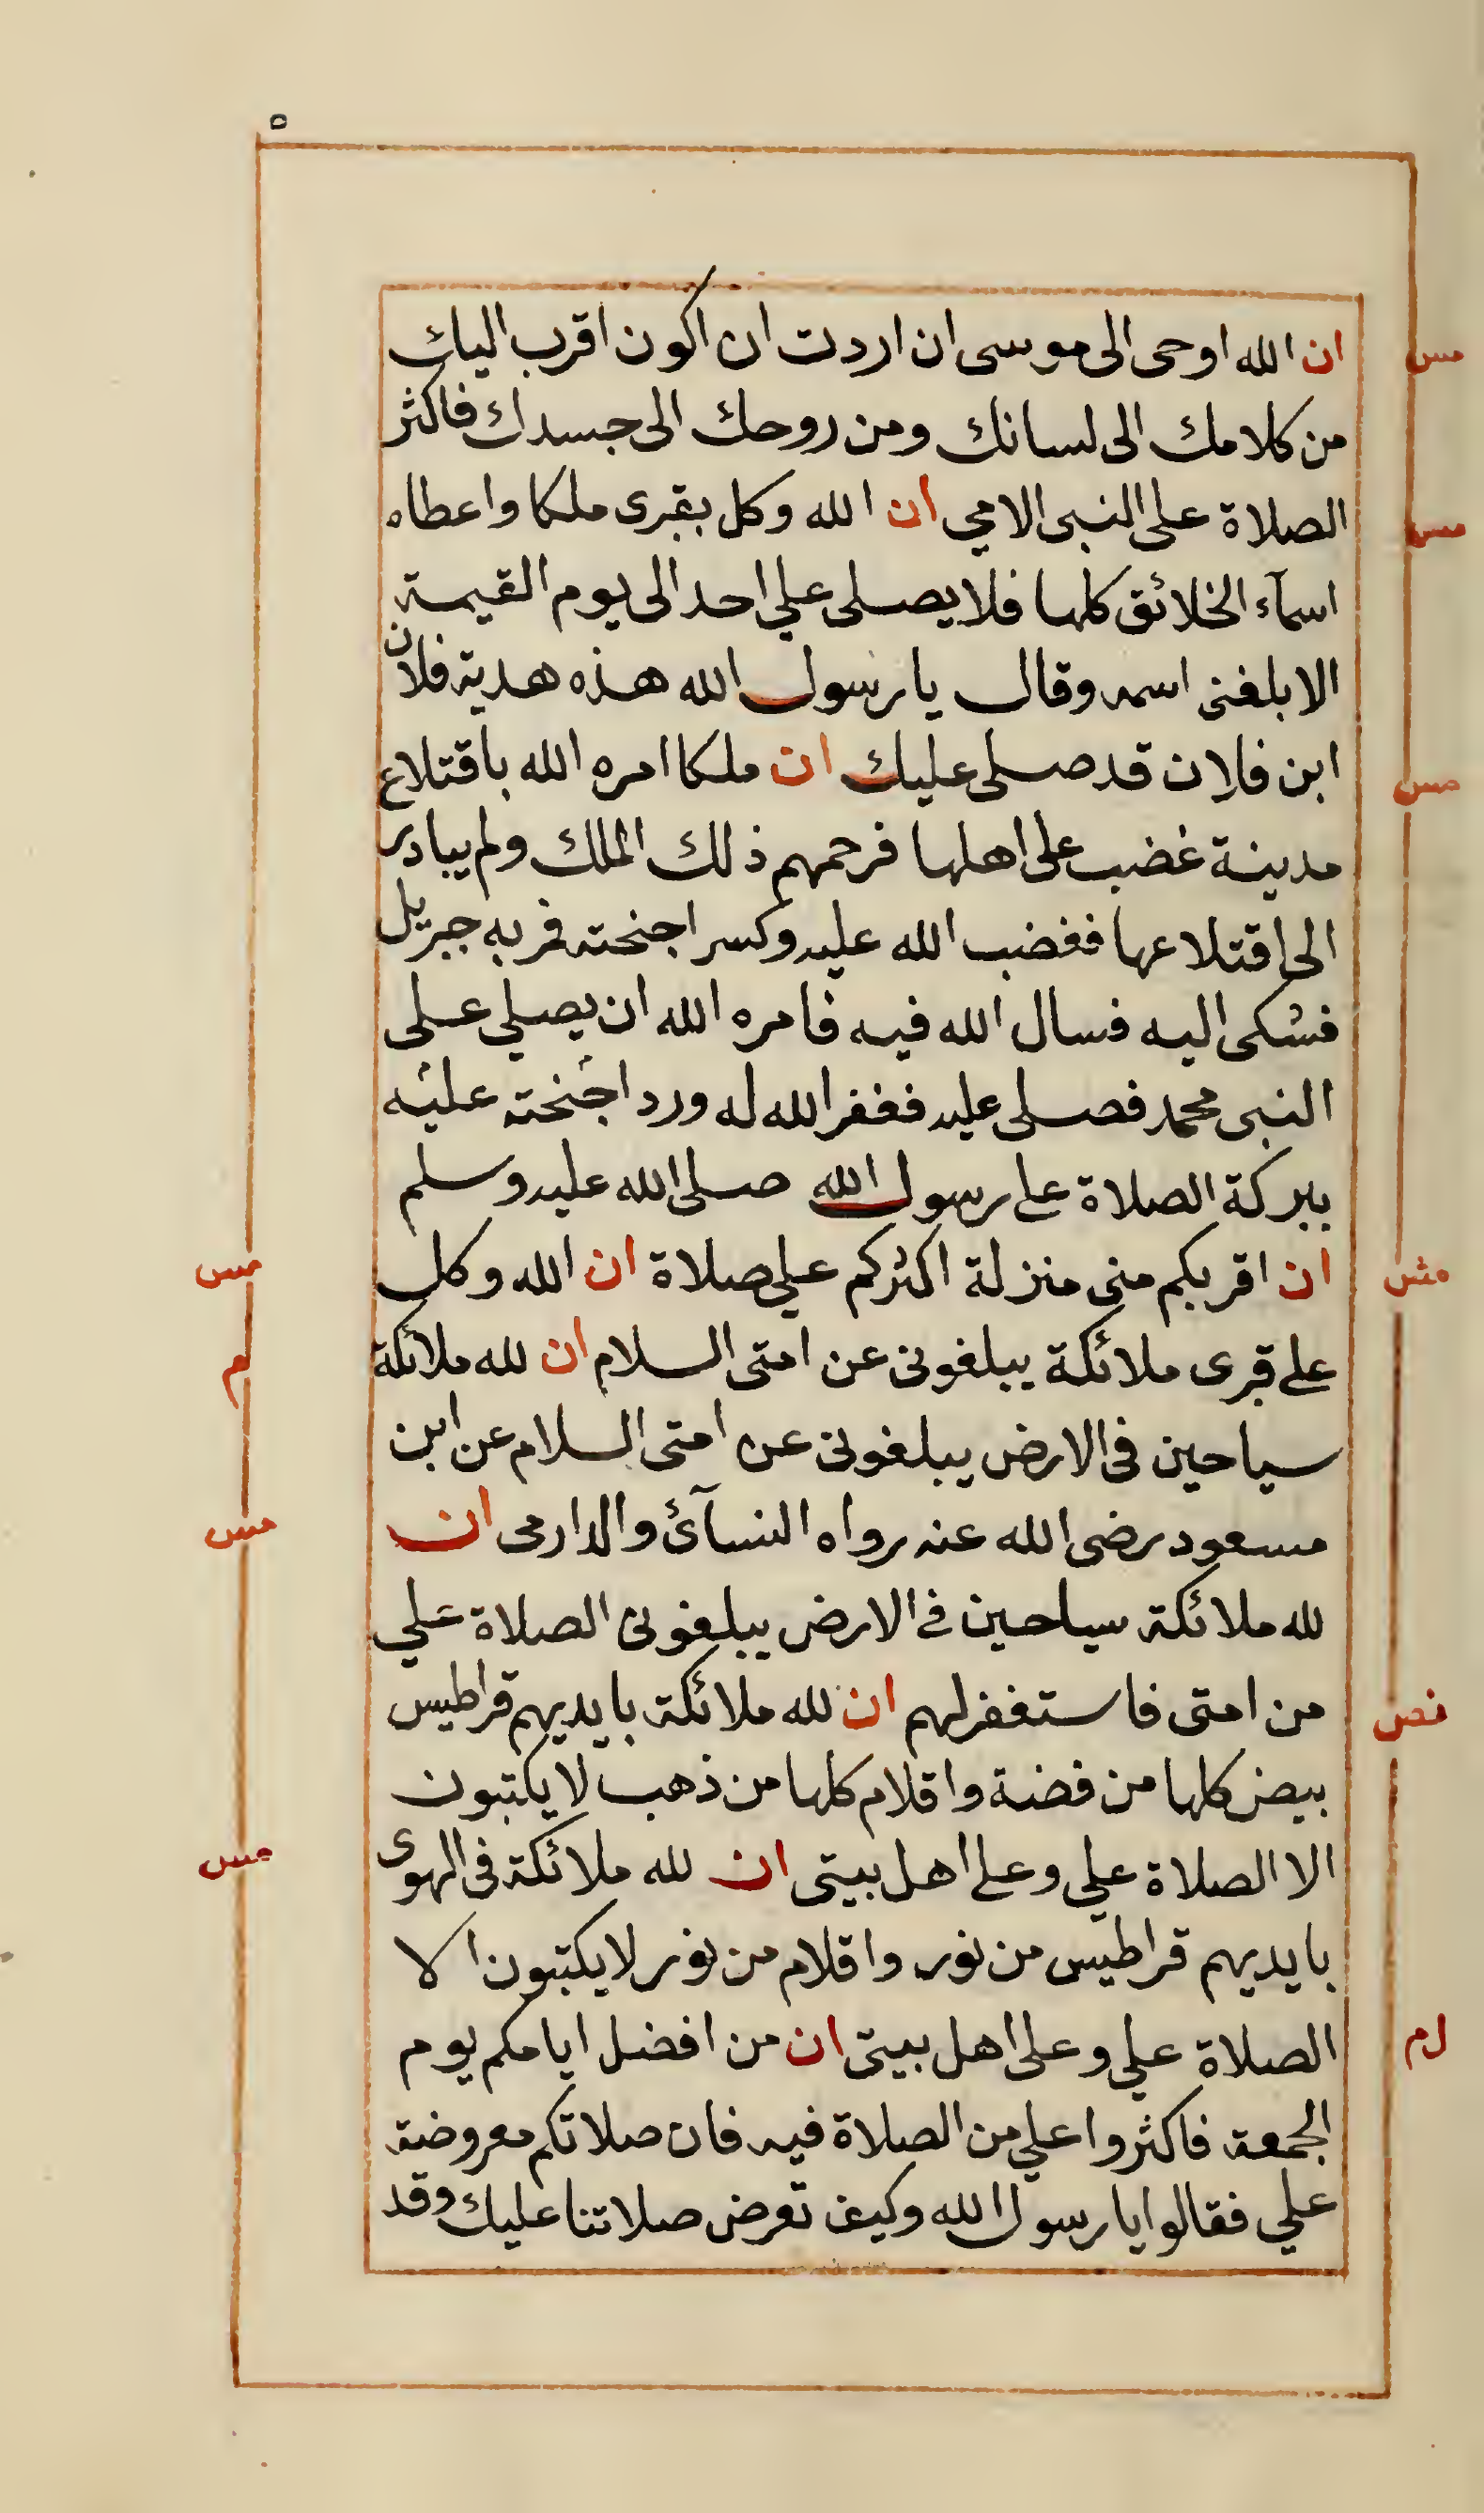 ٥
ان الله اوحى الى موسى ان اردت ان اكون اقرب اليك
من كلامك الى لسانك ومن روحك الى جسدك فاكثر
الصلاة على النبى الامي ان الله وكل بقبرى ملكا واعطاه
اسمآء الخلائق كلها فلا يصلى علي احد الى يوم القيمة
الا بلغنى اسمه وقال يا رسول الله هذه هدية فلان
ابن فلان قد صلى عليك ان ملكا امره الله باقتلاع
مدينة غضب على اهلها فرحمهم ذلك الملك ولم يبادر
الى اقتلاعها فغضب الله عليه وكسر اجنحته فمر به جبريل
فشكى اليه فسال الله فيه فامره الله ان يصلي على
النبى محمد فصلى عليه فغفر الله له ورد اجنحته عليه
ببركة الصلاة على رسول الله صلى الله عليه وسلم
ان اقربكم منى منزلة اكثركم علي صلاة ان الله وكل
على قبرى ملائكة يبلغونى عن امتى السلام ان لله ملائكة
سياحين فى الارض يبلغونى عن امتى السلام عن ابن
مسعود رضى الله عنه رواه النسآئ والدارمى ان
لله ملائكة سياحين فى الارض يبلغونى الصلاة علي
من امتى فاستغفر لهم ان لله ملائكة بايديهم قراطيس
بيض كلها من فضة واقلام كلها من ذهب لا يكتبون
الا الصلاة علي وعلى اهل بيتى ان لله ملائكة فى الهوى
بايديهم قراطيس من نور واقلام من نور لا يكتبون الا
الصلاة علي وعلى اهل بيتى ان من افضل ايامكم يوم
الجمعة فاكثروا علي من الصلاة فيه فان صلاتكم معروضة
علي فقالوا يا رسول الله وكيف تعرض صلاتنا عليك وقد
مس
مس
مس
مس
مس
م
مس
فص
مس
لم